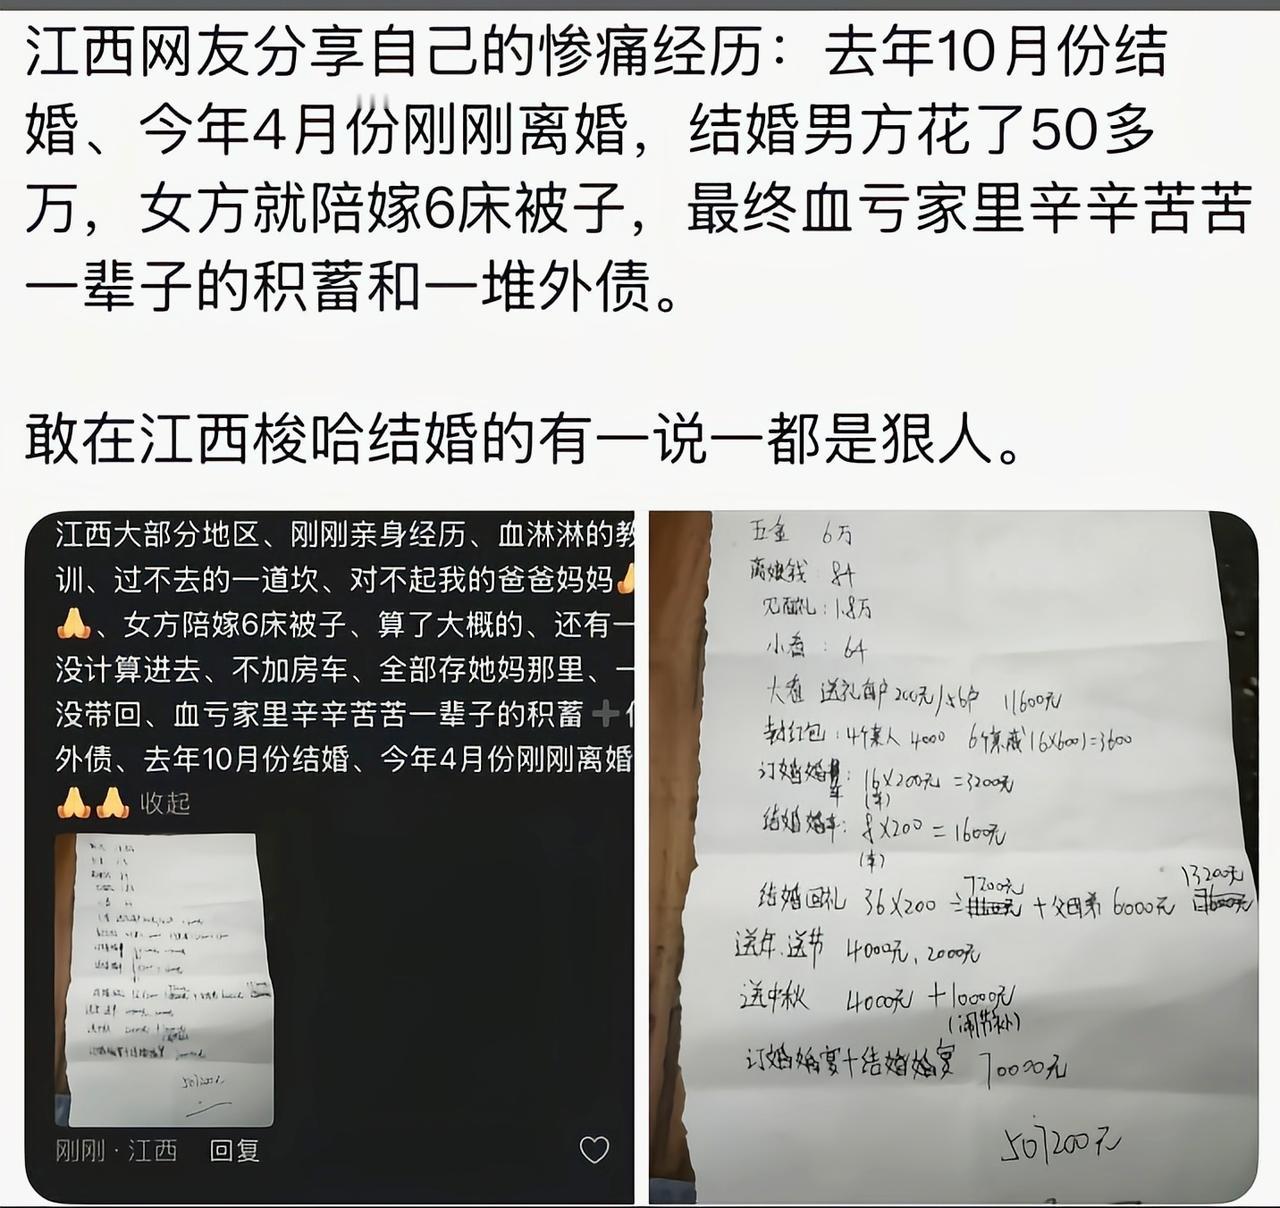 江西网友分享自己的惨痛经历：去年10月份结
婚、今年4月份刚刚离婚，结婚男方花了50多
万，女方就陪嫁6床被子，最终血亏家里辛辛苦苦
一辈子的积蓄和一堆外债。
敢在江西梭哈结婚的有一说一都是狠人。
江西大部分地区、刚刚亲身经历、血淋淋的教
训、过不去的一道坎、对不起我的爸爸妈妈🙏
🙏、女方陪嫁6床被子、算了大概的、还有一
没计算进去、不加房车、全部存她妈那里、一
没带回、血亏家里辛辛苦苦一辈子的积蓄➕
外债、去年10月份结婚、今年4月份刚刚离婚
🙏🙏收起
刚刚·江西 回复
五金 6万
离娘钱：84
见面礼：1.8万
小看：64
大看 送礼每户200元/58户 11600元
封红包：4个亲人 4000 6个亲戚(6×600)=3600
订婚婚车：16×200元=3200元
(车)
结婚婚车：8×200=1600元
(车)
结婚回礼 36×200=7200元+父母弟6000元 13200元
送年、送节 4000元，2000元
送中秋 4000元+10000元
(闰节补)
订婚婚宴+结婚婚宴 70000元
507200元